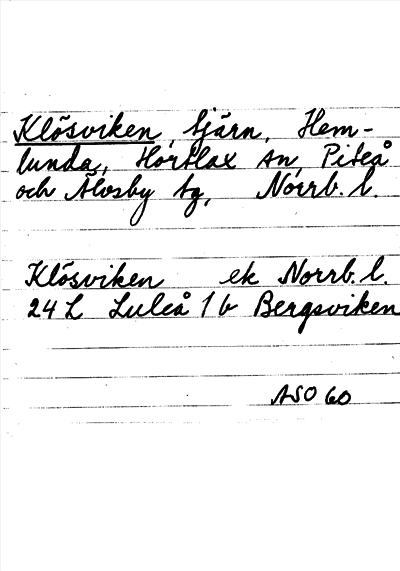 Klösviken, tjärn, Hem-
lunda, Hortlax sn, Piteå
och Älvsby tg, Norrb. l.
Klösviken ek Norrb. l.
24 L Luleå 1 b Bergsviken
ASO 60